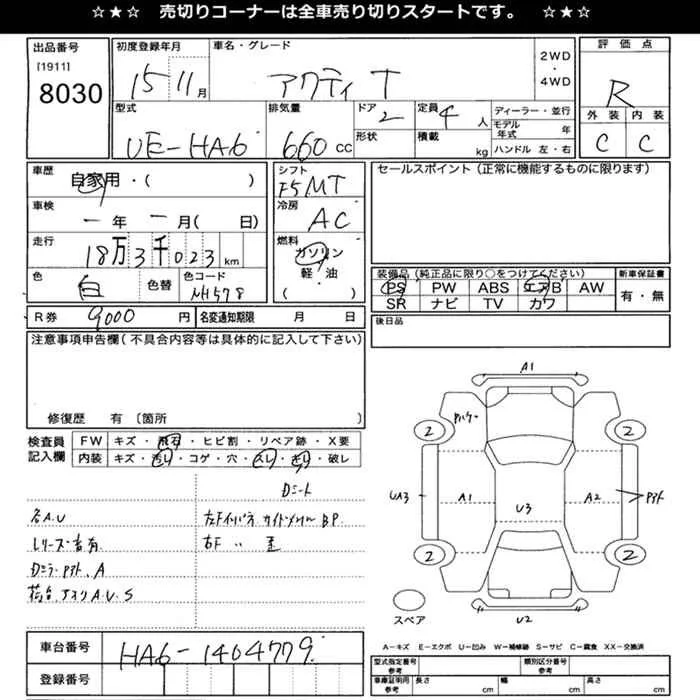 ☆★☆ 売切りコーナーは全車売り切りスタートです。 ☆★☆
出品番号
[1911]
8030
初度登録年月
15 11月
車名・グレード
アクティ T
2WD
・
4WD
評価点
R
外装 内装
C C
型式
UE-HA6
排気量
660cc
ドア
2
形状
定員
4人
積載
kg
ディーラー・並行
モデル年式 年
ハンドル 左・右
車歴
自家用・( )
シフト
F5MT
セールスポイント (正常に機能するものに限ります)
車検
一年 一月( 日)
冷房
AC
走行
18万3千023km
燃料
ガソリン
軽・油
( )
色
白
色替
色コード
NH578
装備品 (純正品に限り○をつけてください)
新車保証書
PS PW ABS エアB AW
SR ナビ TV カワ
有・無
R券 9000円
名変通知期限 月 日
後日品
注意事項申告欄(不具合内容等は具体的に記入して下さい)
修復歴 有 〔箇所
検査員記入欄
FW キズ・飛石・ヒビ割・リペア跡・X要
内装 キズ・汚れ・コゲ・穴・スレ・キレ・破レ
Dシート
各A.U
A1
2 2
UA3 A1 U3 A2
2 2
スペア
U2
A-キズ E-エクボ U-凹み W-補修跡 S-サビ C-腐食 XX-交換済
車台番号
HA6-1404779
登録番号
型式指定番号
参考
類別区分番号
参考
車庫証明用
参考
長さ cm
幅 cm
高さ cm